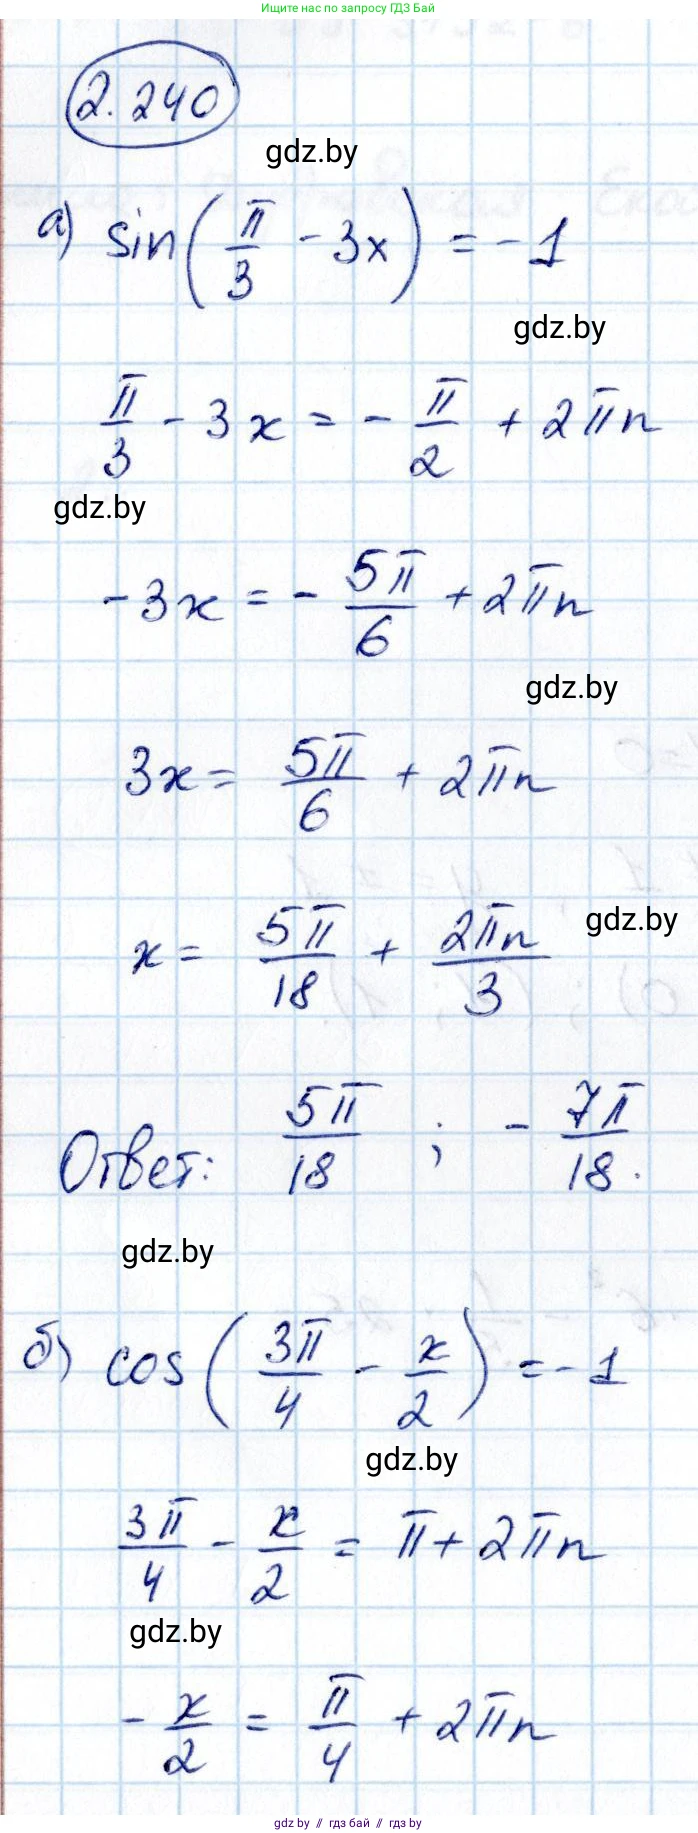 Ищите нас по запросу ГДЗ Бай
2.240
gdz.by
а) sin(π/3 - 3x) = -1
gdz.by
π/3 - 3x = -π/2 + 2πn
gdz.by
-3x = -5π/6 + 2πn
gdz.by
3x = 5π/6 + 2πn
gdz.by
x = 5π/18 + 2πn/3
Ответ: 5π/18 ; -7π/18.
gdz.by
б) cos(3π/4 - x/2) = -1
gdz.by
3π/4 - x/2 = π + 2πn
gdz.by
-x/2 = π/4 + 2πn
gdz.by // гдз бай // gdz.by